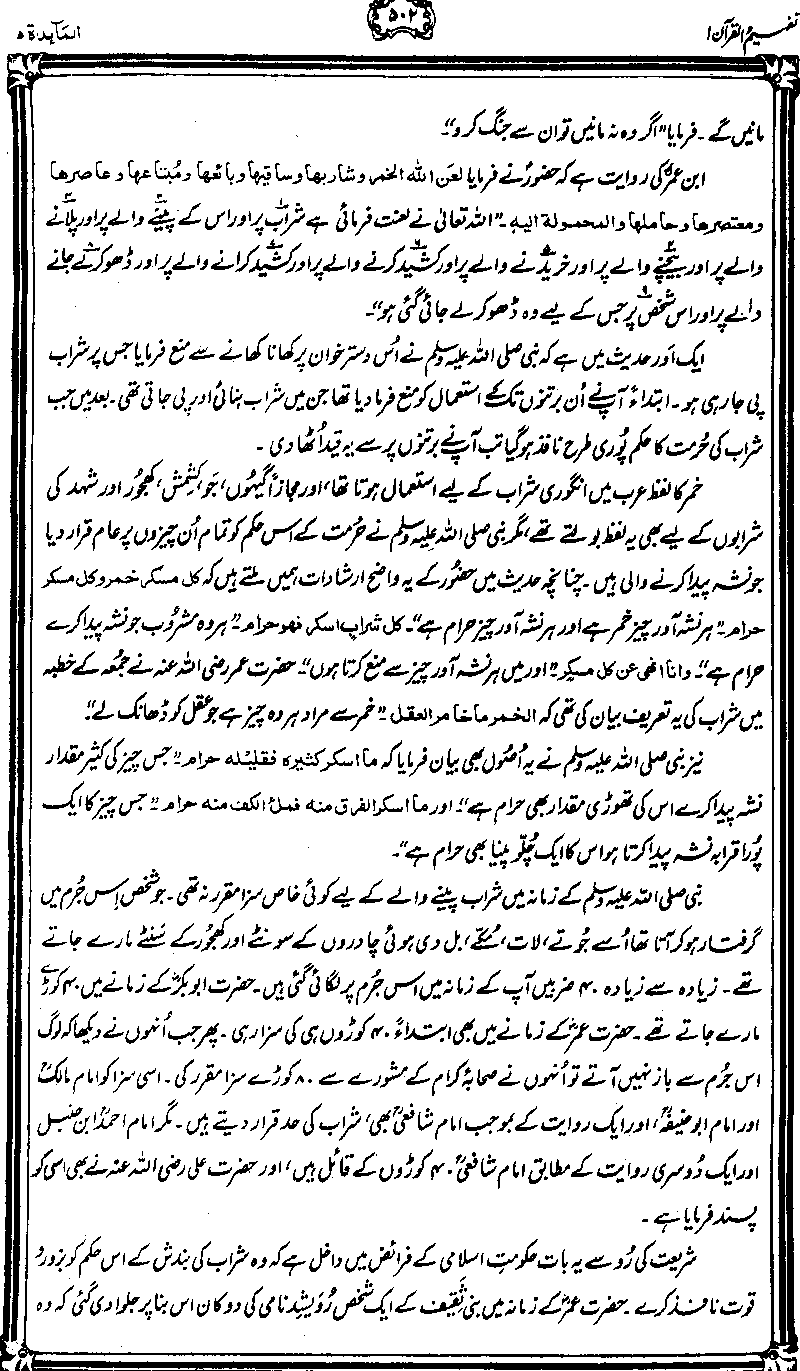 تفہیم القرآن ۱
۵۰۲
المآیدۃ ۵
مانیں گے ۔ فرمایا "اگر وہ نہ مانیں تو ان سے جنگ کرو"۔
ابن عمرؓ کی روایت ہے کہ حضورؐ نے فرمایا لعن اللہ الخمر و شاربھا و ساقیھا و بائعھا و مُبتاعھا و عاصرھا
و معتصرھا و حاملھا و المحمولۃ الیہ ۔ "اللہ تعالیٰ نے لعنت فرمائی ہے شراب پر اور اس کے پینے والے پر اور پلانے
والے پر اور بیچنے والے پر اور خریدنے والے پر اور کشید کرنے والے پر اور کشید کرانے والے پر اور ڈھو کر لے جانے
والے پر اور اس شخص پر جس کے لیے وہ ڈھو کر لے جائی گئی ہو"۔
ایک اور حدیث میں ہے کہ نبی صلی اللہ علیہ وسلم نے اُس دسترخوان پر کھانا کھانے سے منع فرمایا جس پر شراب
پی جا رہی ہو ۔ ابتداءً آپؐ نے اُن برتنوں تک کے استعمال کو منع فرما دیا تھا جن میں شراب بنائی اور پی جاتی تھی ۔ بعد میں جب
شراب کی حُرمت کا حکم پُوری طرح نافذ ہو گیا تب آپؐ نے برتنوں پر سے یہ قید اُٹھا دی ۔
خمر کا لفظ عرب میں انگوری شراب کے لیے استعمال ہوتا تھا، اور مجازاً گیہوں، جَو، کِشمِش، کھجور اور شہد کی
شرابوں کے لیے بھی یہ لفظ بولتے تھے، مگر نبی صلی اللہ علیہ وسلم نے حرمت کے اس حکم کو تمام اُن چیزوں پر عام قرار دیا
جو نشہ پیدا کرنے والی ہیں ۔ چنانچہ حدیث میں حضورؐ کے یہ واضح ارشادات ہمیں ملتے ہیں کہ کل مسکر خمر و کل مسکر
حرام ۔ "ہر نشہ آور چیز خمر ہے اور ہر نشہ آور چیز حرام ہے"۔ کل شراب اسکر فھو حرام ۔ "ہر وہ مشروُب جو نشہ پیدا کرے
حرام ہے"۔ و انا انھی عن کل مسکرٍ ۔ "اور میں ہر نشہ آور چیز سے منع کرتا ہوں"۔ حضرت عمر رضی اللہ عنہ نے جمُعہ کے خطبہ
میں شراب کی یہ تعریف بیان کی تھی کہ الخمر ما خامر العقل ۔ "خمر سے مراد ہر وہ چیز ہے جو عقل کو ڈھانک لے"۔
نیز نبی صلی اللہ علیہ وسلم نے یہ اُصُول بھی بیان فرمایا کہ ما اسکر کثیرہ فقلیلہ حرام ۔ "جس چیز کی کثیر مقدار
نشہ پیدا کرے اس کی تھوڑی مقدار بھی حرام ہے"۔ اور ما اسکر الفرق منہ فملأ الکف منہ حرام ۔ "جس چیز کا ایک
پُورا قرابہ نشہ پیدا کرتا ہو اس کا ایک چُلّو پینا بھی حرام ہے"۔
نبی صلی اللہ علیہ وسلم کے زمانہ میں شراب پینے والے کے لیے کوئی خاص سزا مقرر نہ تھی ۔ جو شخص اِس جُرم میں
گرفتار ہو کر آتا تھا اُسے جُوتے، لات، مُکّے، بل دی ہوئی چادروں کے سونٹے اور کھجور کے سَنٹے مارے جاتے
تھے ۔ زیادہ سے زیادہ ۴۰ ضربیں آپ کے زمانہ میں اس جُرم پر لگائی گئی ہیں ۔ حضرت ابوبکرؓ کے زمانے میں ۴۰ کوڑے
مارے جاتے تھے ۔ حضرت عمرؓ کے زمانے میں بھی ابتداءً ۴۰ کوڑوں ہی کی سزا رہی ۔ پھر جب اُنھوں نے دیکھا کہ لوگ
اس جُرم سے باز نہیں آتے تو اُنھوں نے صحابۂ کرام کے مشورے سے ۸۰ کوڑے سزا مقرر کی ۔ اسی سزا کو امام مالکؒ
اور امام ابو حنیفہؒ، اور ایک روایت کے بموجب امام شافعیؒ بھی، شراب کی حد قرار دیتے ہیں ۔ مگر امام احمدؒ ابن حنبل
اور ایک دُوسری روایت کے مطابق امام شافعیؒ ۴۰ کوڑوں کے قائل ہیں، اور حضرت علی رضی اللہ عنہ نے بھی اسی کو
پسند فرمایا ہے ۔
شریعت کی رُو سے یہ بات حکومتِ اسلامی کے فرائض میں داخل ہے کہ وہ شراب کی بندش کے اس حکم کو بزور و
قوت نافذ کرے ۔ حضرت عمرؓ کے زمانہ میں بنی ثَقِیف کے ایک شخص رُوَیشِد نامی کی دوکان اس بنا پر جلوا دی گئی کہ وہ